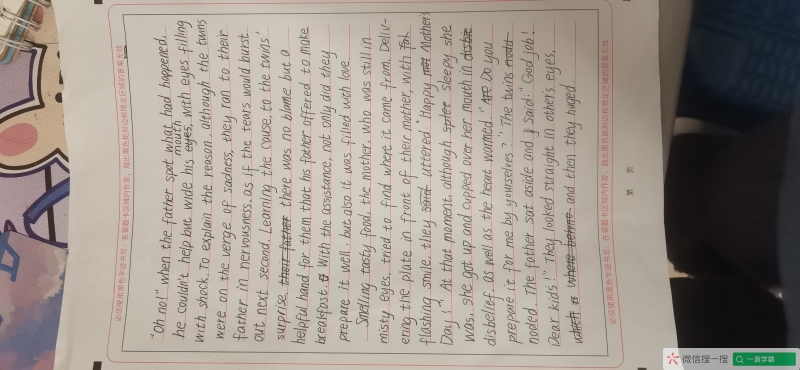 "Oh no!" when the father spot what had happened,
he couldn't help but wide his eyes, mouth with eyes filling
with shock. To explain the reason, although the twins
were on the verge of sadness, they ran to their
father in nervousness as if the tears would burst
out next second. Learning the cause, to the twins'
surprise, their father there was no blame but a
helpful hand for them that his father offered to make
breakfast. With the assistance, not only did they
prepare it well, but also it was filled with love.
Smelling tasty food, the mother, who was still in
misty eyes, tried to find where it came from. Deliv-
ering the plate in front of their mother, with
flashing smile, they said uttered: "Happy Mother's
Day!" At that moment, although sleepy she
was, she got up and cupped over her mouth in
disbelief as well as the heart warmed. "Do you
prepare it for me by yourselves?" The twins
noded. The father sat aside and said: "Good job!
Dear kids!" They looked straight in other's eyes,
where and then they huged
必须使用黑色字迹书写，在答题卡区域内作答，超出黑色矩形边框限定区域的答案无效
必须使用黑色字迹书写，在答题卡区域内作答，超出黑色矩形边框限定区域的答案无效
第 页
微信搜一搜
一直学霸